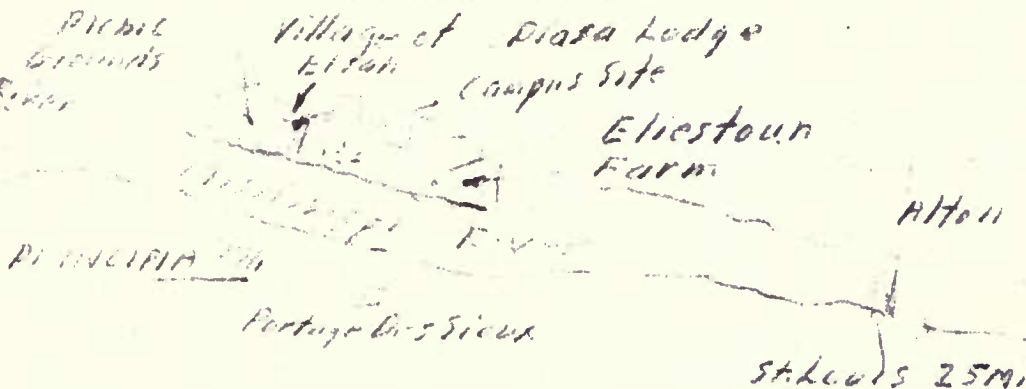 Picnic Grounds
Village of Elsah
Piasa Lodge
Campus Site
Eliestoun Farm
Alton
Mississippi River
PRINCIPIA
Portage Des Sioux
St. Louis 25 Mi